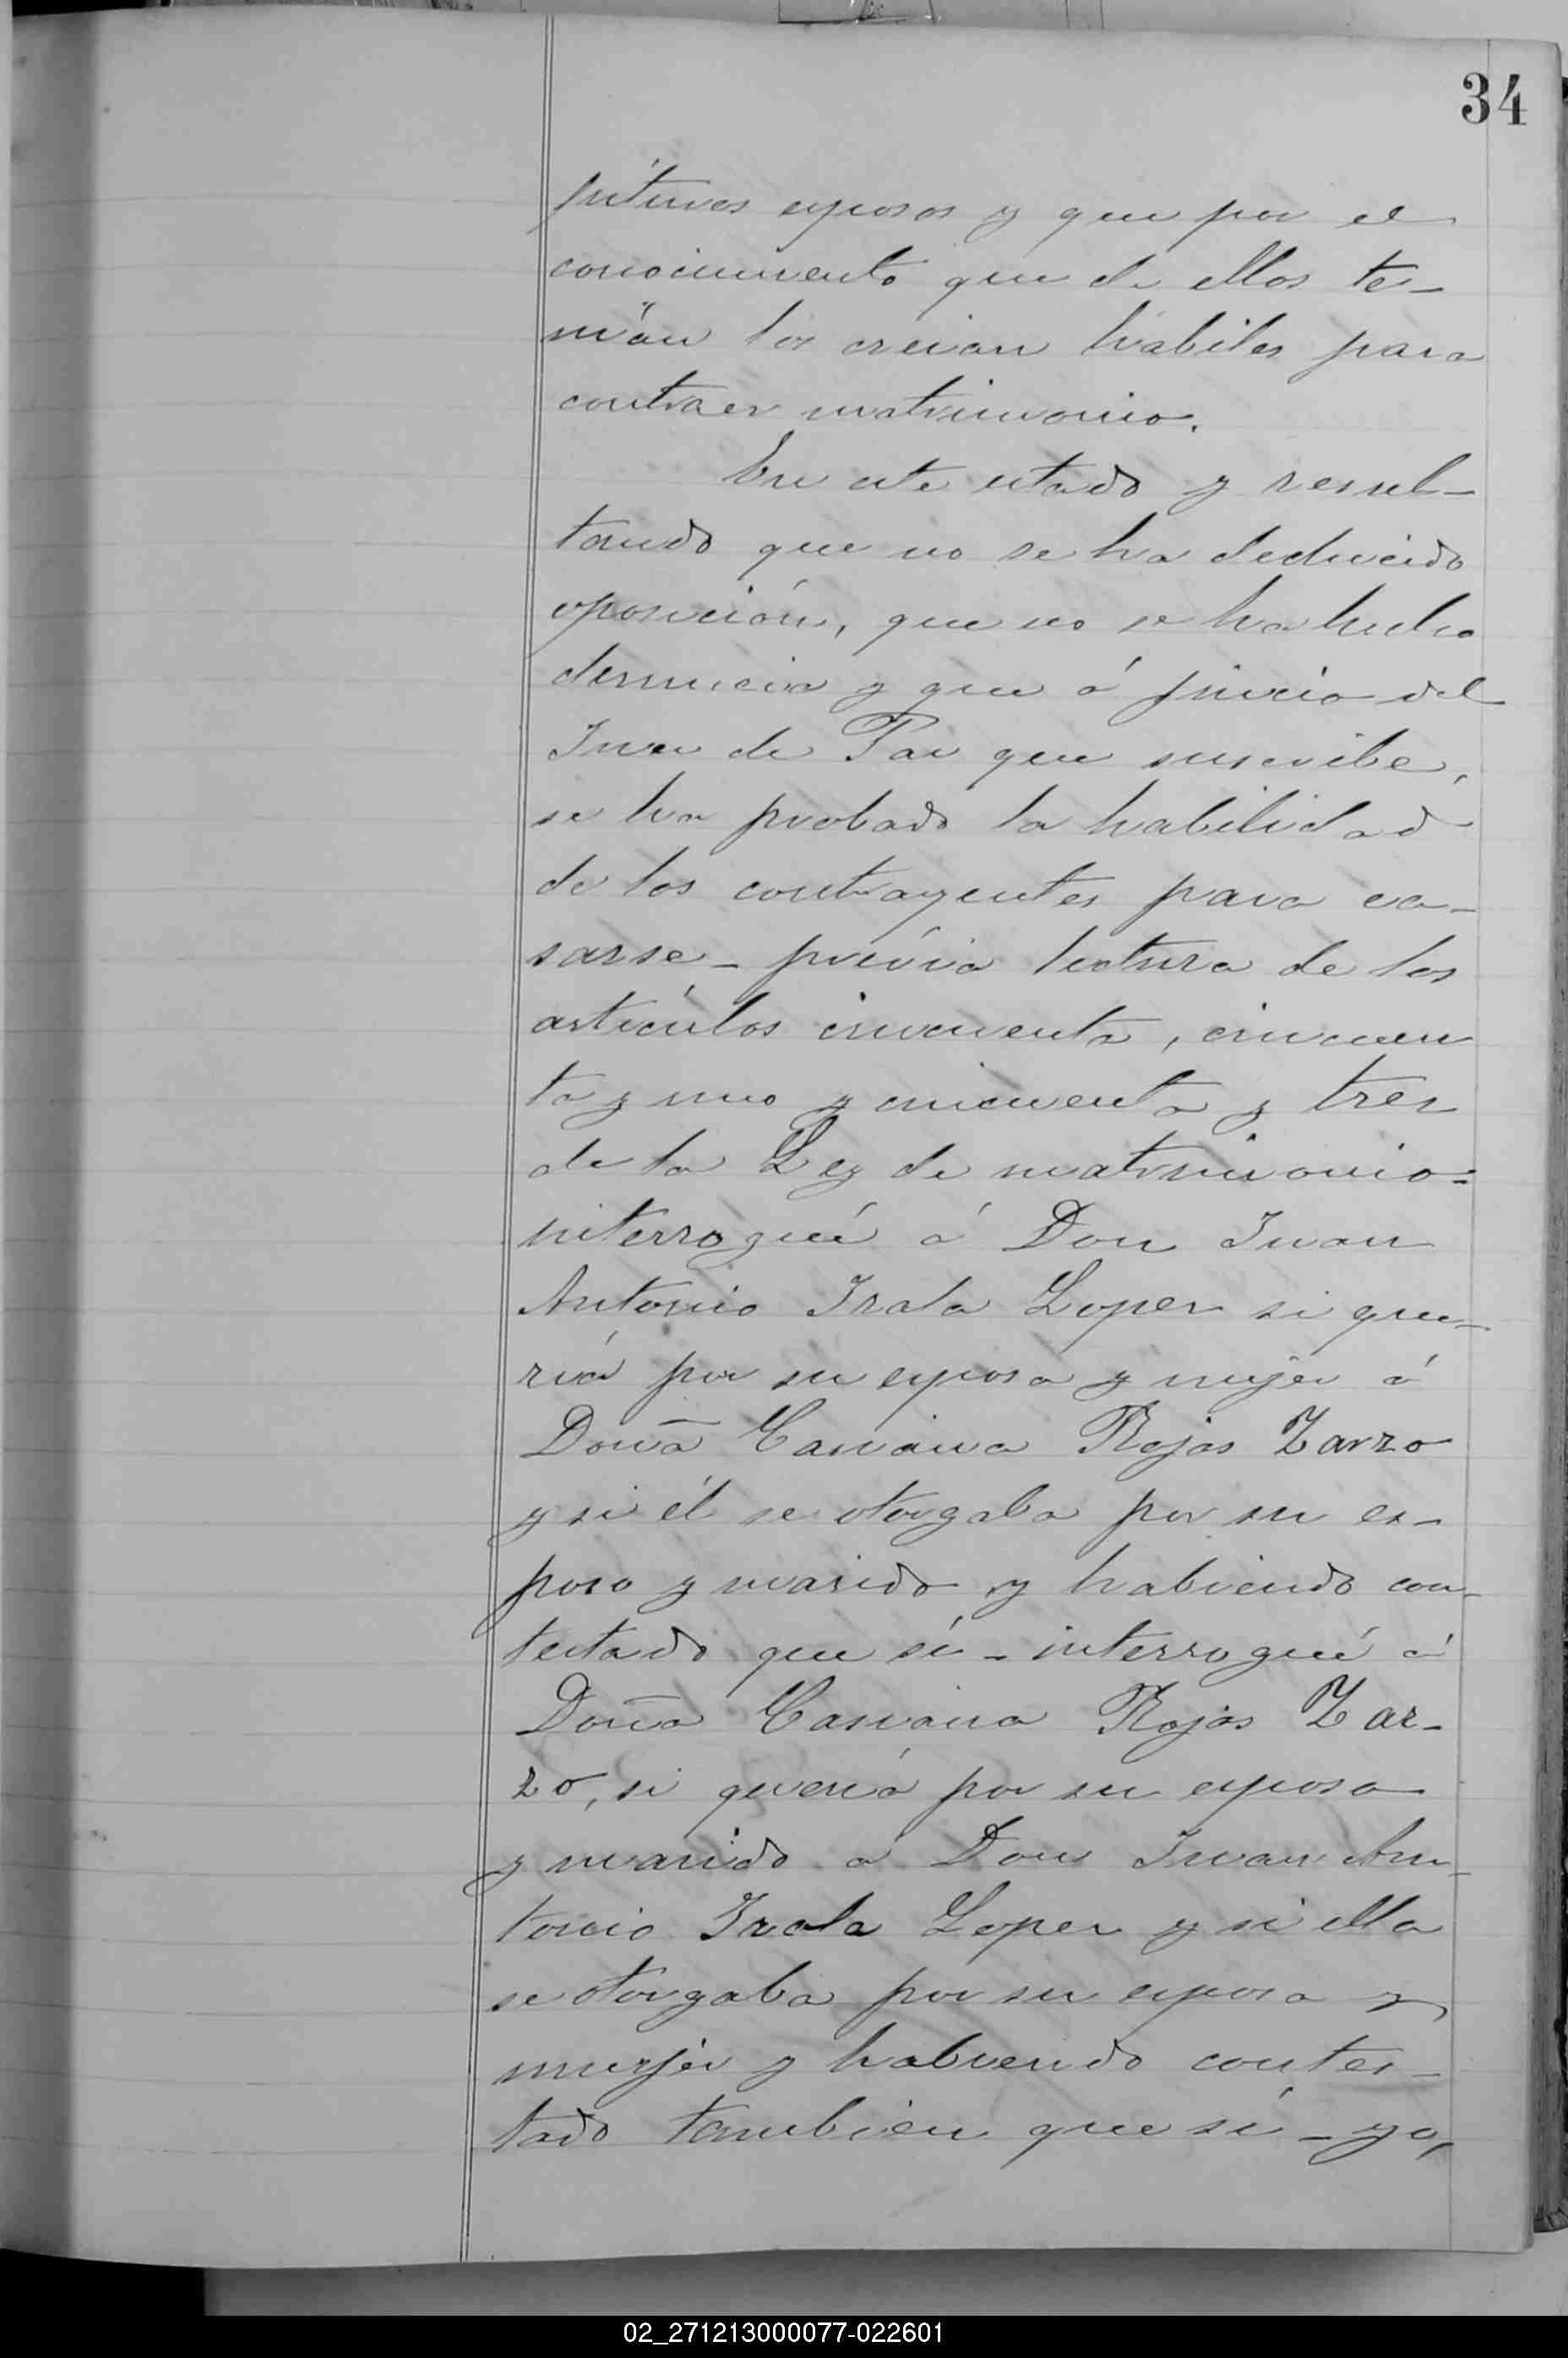 34
futuros esposos y que por el
conocimiento que de ellos te-
nían los creían hábiles para
contraer matrimonio.
En este estado y resul-
tando que no se ha deducido
oposición, que no se ha hecho
denuncia y que á juicio del
Juez de Paz que suscribe,
se ha probado la habilidad
de los contrayentes para ca-
sarse - prévia lectura de los
artículos cincuenta, cincuen
ta y uno y cincuenta y tres
de la Ley de matrimonio-
interrogué á Don Juan
Antonio Irala Lopez si que-
ría por su esposa y mujer á
Doña Casiana Rojas Zarzo
y si él se otorgaba por su es-
poso y marido y habiendo con-
testado que sí - interrogué á
Doña Casiana Rojas Zar-
zo, si quería por su esposo
y marido á Don Juan An-
tonio Irala Lopez y si ella
se otorgaba por su esposa y
mujer y habiendo contes-
tado tambien que sí - yo,
02_271213000077-022601